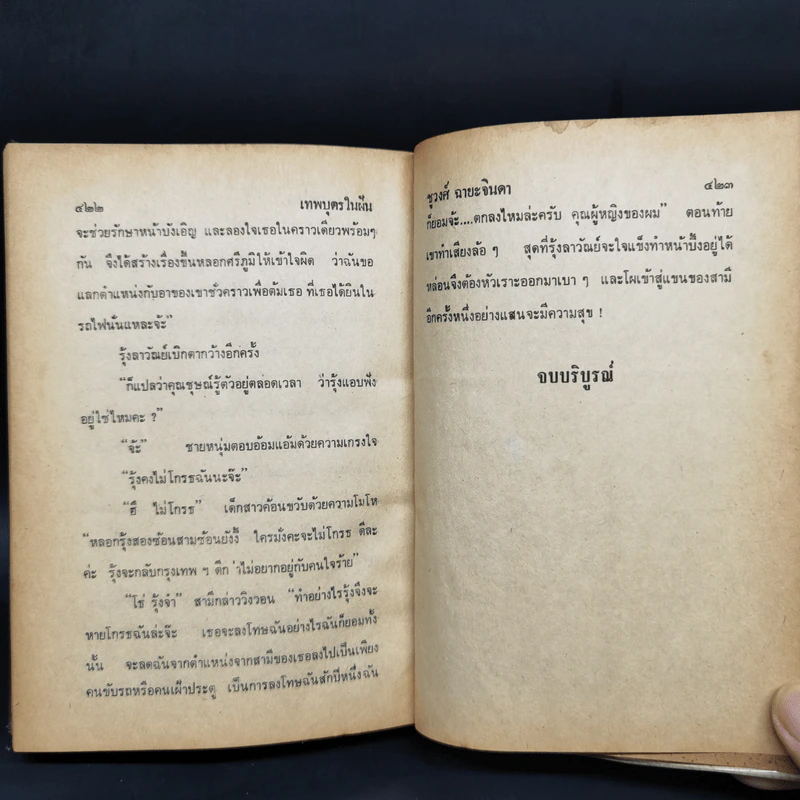 ๔๒๒ เทพบุตรในฝัน
จะช่วยรักษาหน้าบังเอิญ และลองใจเธอในคราวเดียวพร้อมๆ
กัน จึงได้สร้างเรื่องขึ้นหลอกศรีภูมิให้เข้าใจผิด ว่าฉันขอ
แลกตำแหน่งกับอาของเขาชั่วคราวเพื่อต้มเธอ ที่เธอได้ยินใน
รถไฟนั่นแหละจ้ะ”
รุ้งลาวัณย์เบิกตากว้างอีกครั้ง
“ก็แปลว่าคุณชุษณ์รู้ตัวอยู่ตลอดเวลา ว่ารุ้งแอบฟัง
อยู่ใช่ไหมคะ ?”
“จ้ะ” ชายหนุ่มตอบอ้อมแอ้มด้วยความเกรงใจ
“รุ้งคงไม่โกรธฉันนะจ๊ะ”
“ฮึ ไม่โกรธ” เด็กสาวค้อนขวับด้วยความโมโห
“หลอกรุ้งสองซ้อนสามซ้อนยังงี้ ใครมั่งคะจะไม่โกรธ ดีละ
ค่ะ รุ้งจะกลับกรุงเทพ ฯ ดีกว่าไม่อยากอยู่กับคนใจร้าย”
“โธ่ รุ้งจ๋า” สามีกล่าววิงวอน “ทำอย่างไรรุ้งจึงจะ
หายโกรธฉันล่ะจ๊ะ เธอจะลงโทษฉันอย่างไรฉันก็ยอมทั้ง
นั้น จะลดฉันจากตำแหน่งจากสามีของเธอลงไปเป็นเพียง
คนขับรถหรือคนเฝ้าประตู เป็นการลงโทษฉันสักปีหนึ่งฉัน
ชูวงศ์ ฉายะจินดา ๔๒๓
ก็ยอมจ้ะ....ตกลงไหมล่ะครับ คุณผู้หญิงของผม” ตอนท้าย
เขาทำเสียงล้อ ๆ สุดที่รุ้งลาวัณย์จะใจแข็งทำหน้าบึ้งอยู่ได้
หล่อนจึงต้องหัวเราะออกมาเบา ๆ และโผเข้าสู่แขนของสามี
อีกครั้งหนึ่งอย่างแสนจะมีความสุข !
จบบริบูรณ์